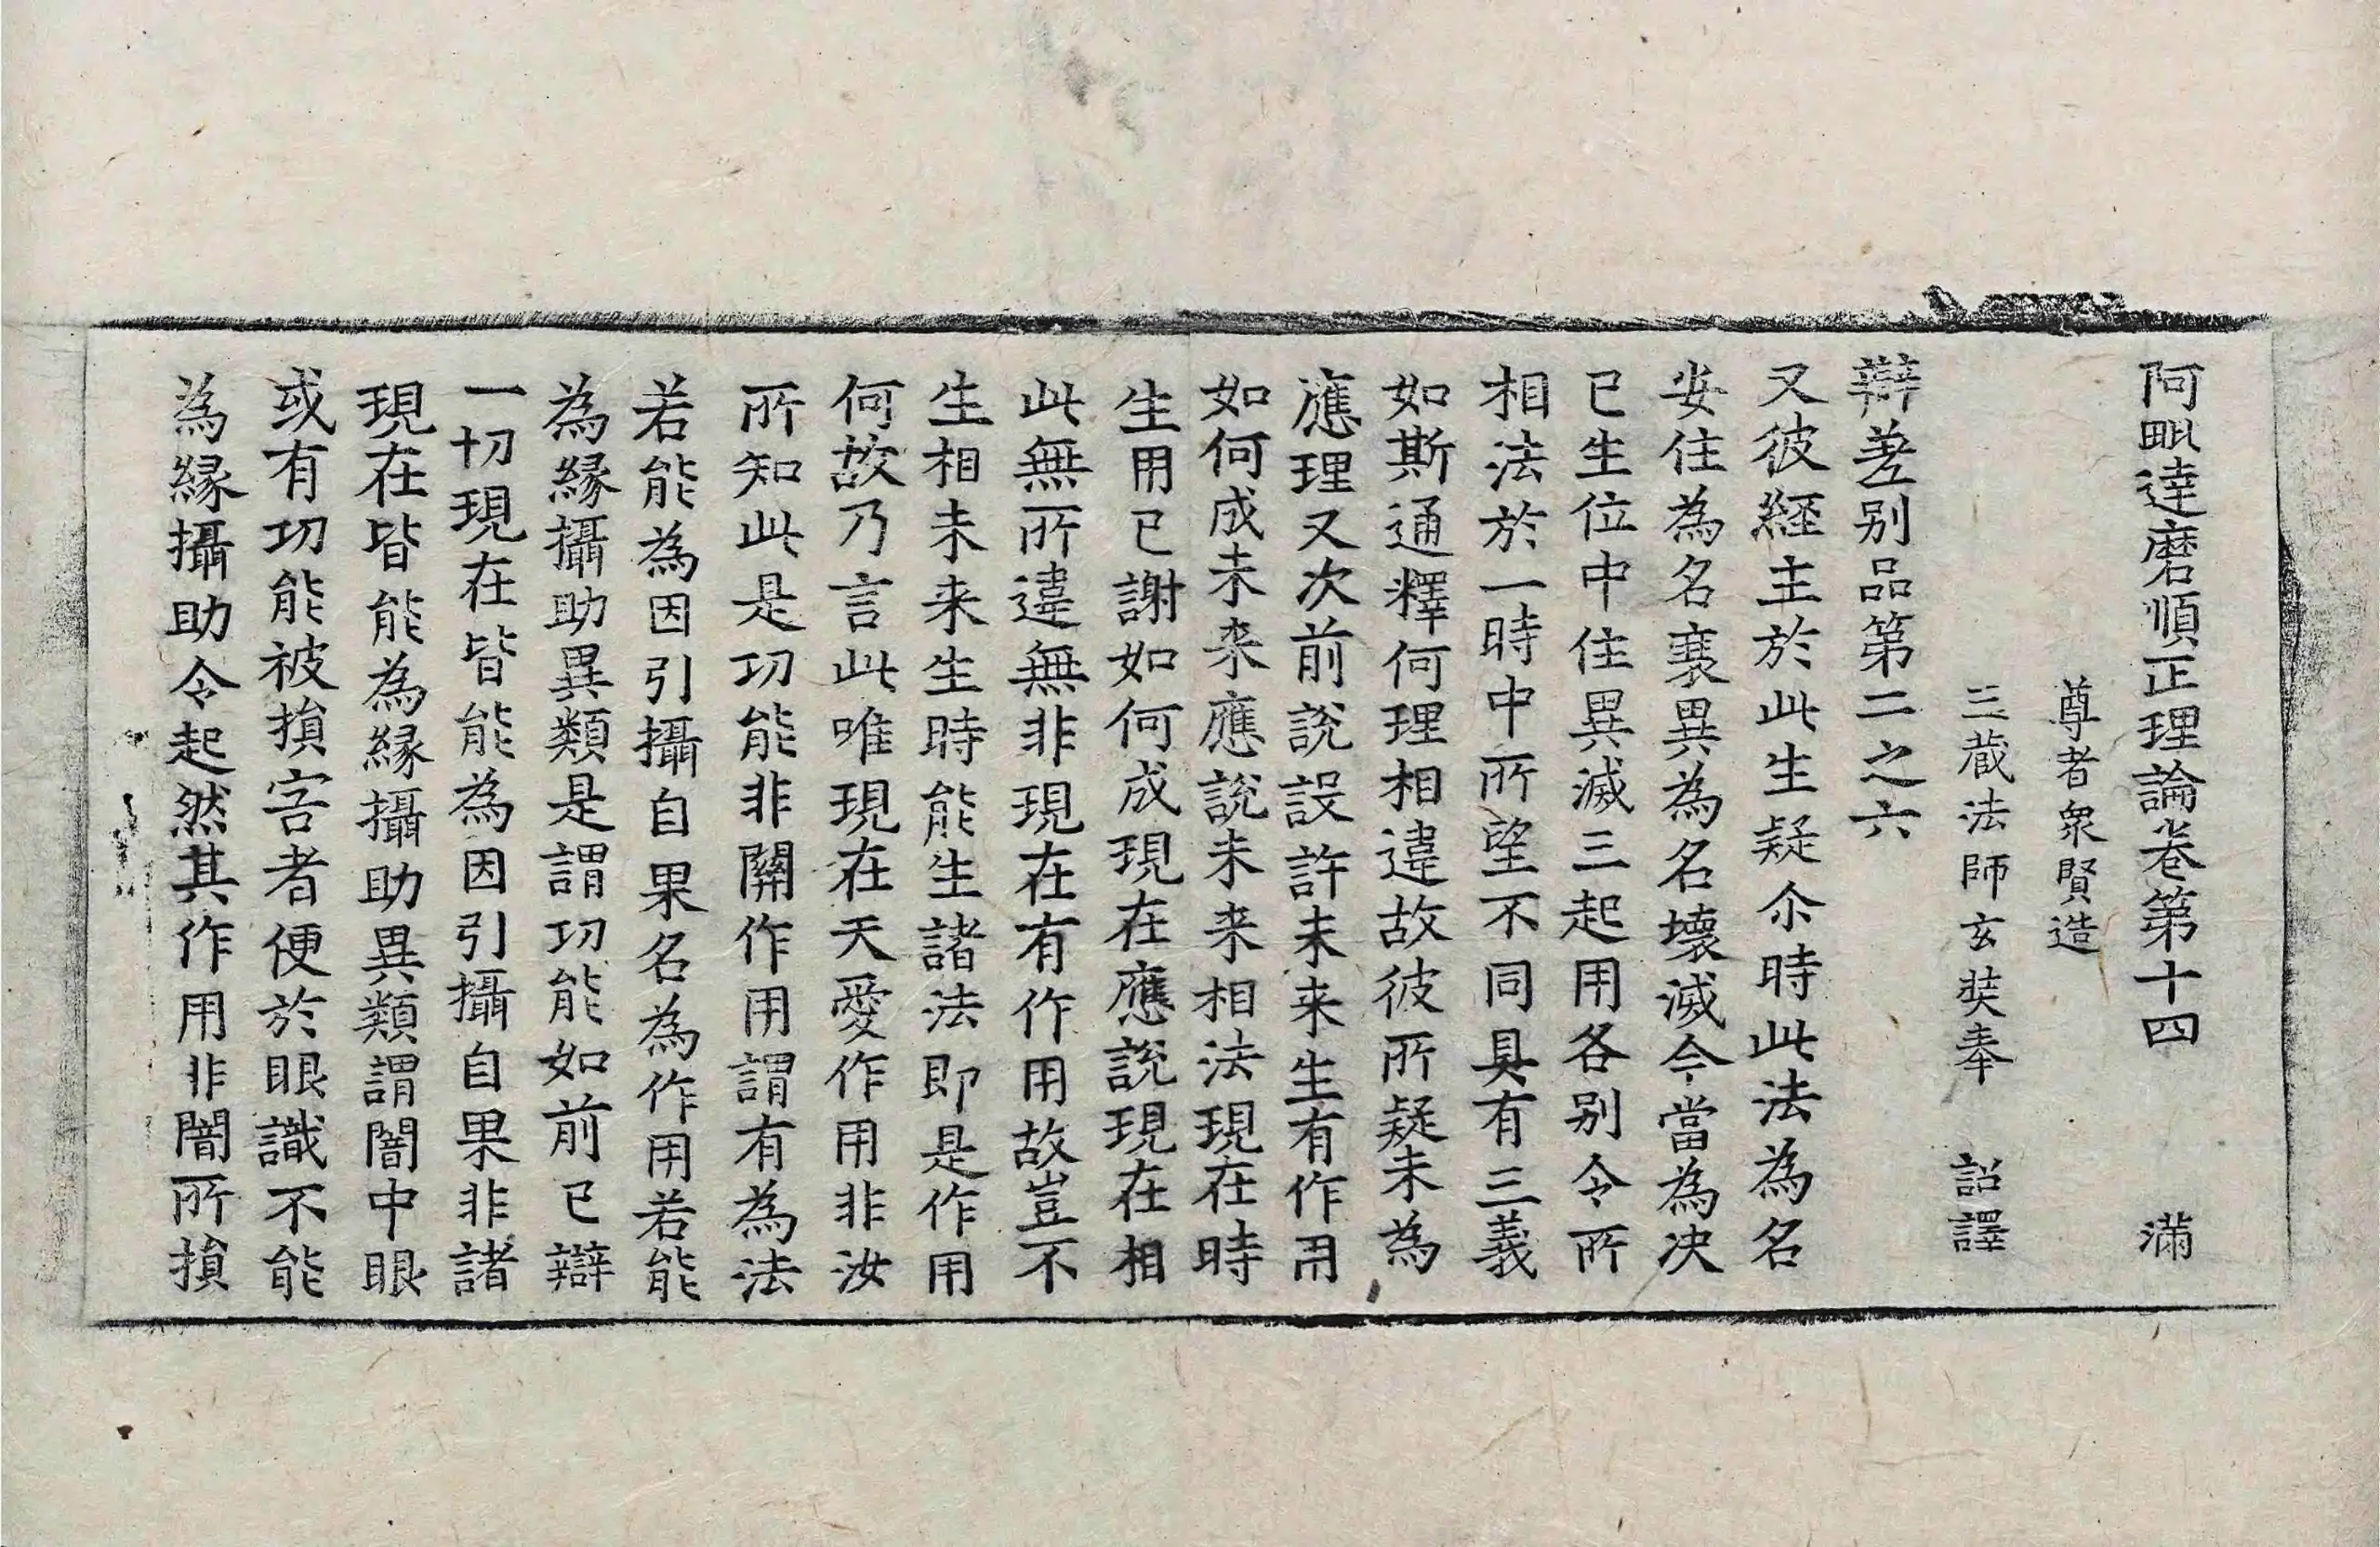 阿毗達磨順正理論卷第十四　滿
尊者衆賢造
三藏法師玄奘奉　詔譯
辯差別品第二之六
又彼經主於此生疑尒時此法為名
安住為名衰異為名壞滅今當為决
已生位中住異滅三起用各别令所
相法於一時中所望不同具有三義
如斯通釋何理相違故彼所疑未為
應理又次前說設許未来生有作用
如何成未来應說未来相法現在時
生用已謝如何成現在應說現在相
此無所違無非現在有作用故豈不
生相未来生時能生諸法即是作用
何故乃言此唯現在天愛作用非汝
所知此是功能非關作用謂有為法
若能為因引攝自果名為作用若能
為縁攝助異類是謂功能如前已辯
一切現在皆能為因引攝自果非諸
現在皆能為縁攝助異類謂闇中眼
或有功能被損害者便於眼識不能
為縁攝助令起然其作用非闇所損